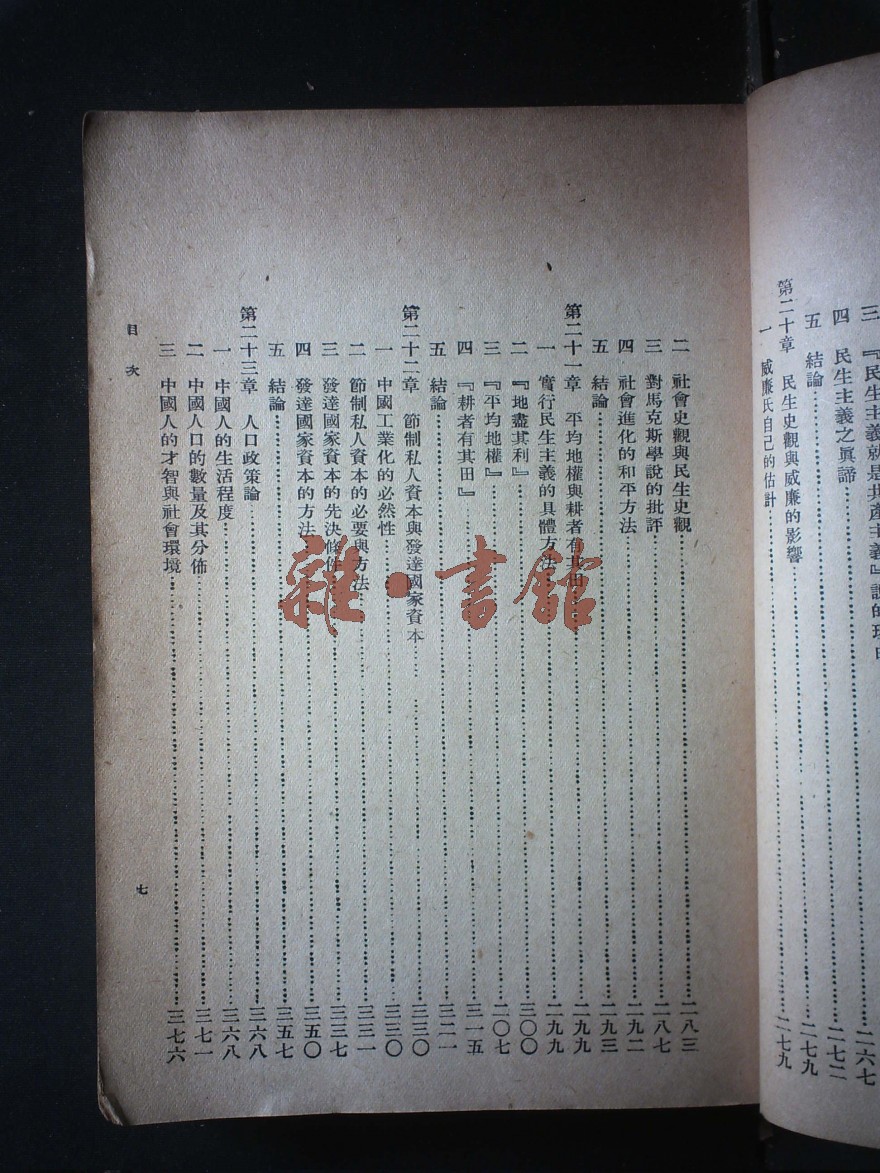 三 『民生主義就是共產主義』說的理由 二六七
四 民生主義之眞諦 二七二
五 結論 二七九
第二十章 民生史觀與威廉的影響
一 威廉氏自己的估計 二七九
二 社會史觀與民生史觀 二八三
三 對馬克斯學說的批評 二八七
四 社會進化的和平方法 二九二
五 結論 二九三
第二十一章 平均地權與耕者有其田 二九九
一 實行民生主義的具體方法 二九九
二 『地盡其利』 三〇〇
三 『平均地權』 二〇七
四 『耕者有其田』 三一五
五 結論 三二一
第二十二章 節制私人資本與發達國家資本 三三〇
一 中國工業化的必然性 三三〇
二 節制私人資本的必要與方法 三三一
三 發達國家資本的先決條件 三三七
四 發達國家資本的方法 三五〇
五 結論 三五七
第二十三章 人口政策論 三六八
一 中國人的生活程度 三六八
二 中國人口的數量及其分佈 三七一
三 中國人的才智與社會環境 三七六
目次
七
雜·書館